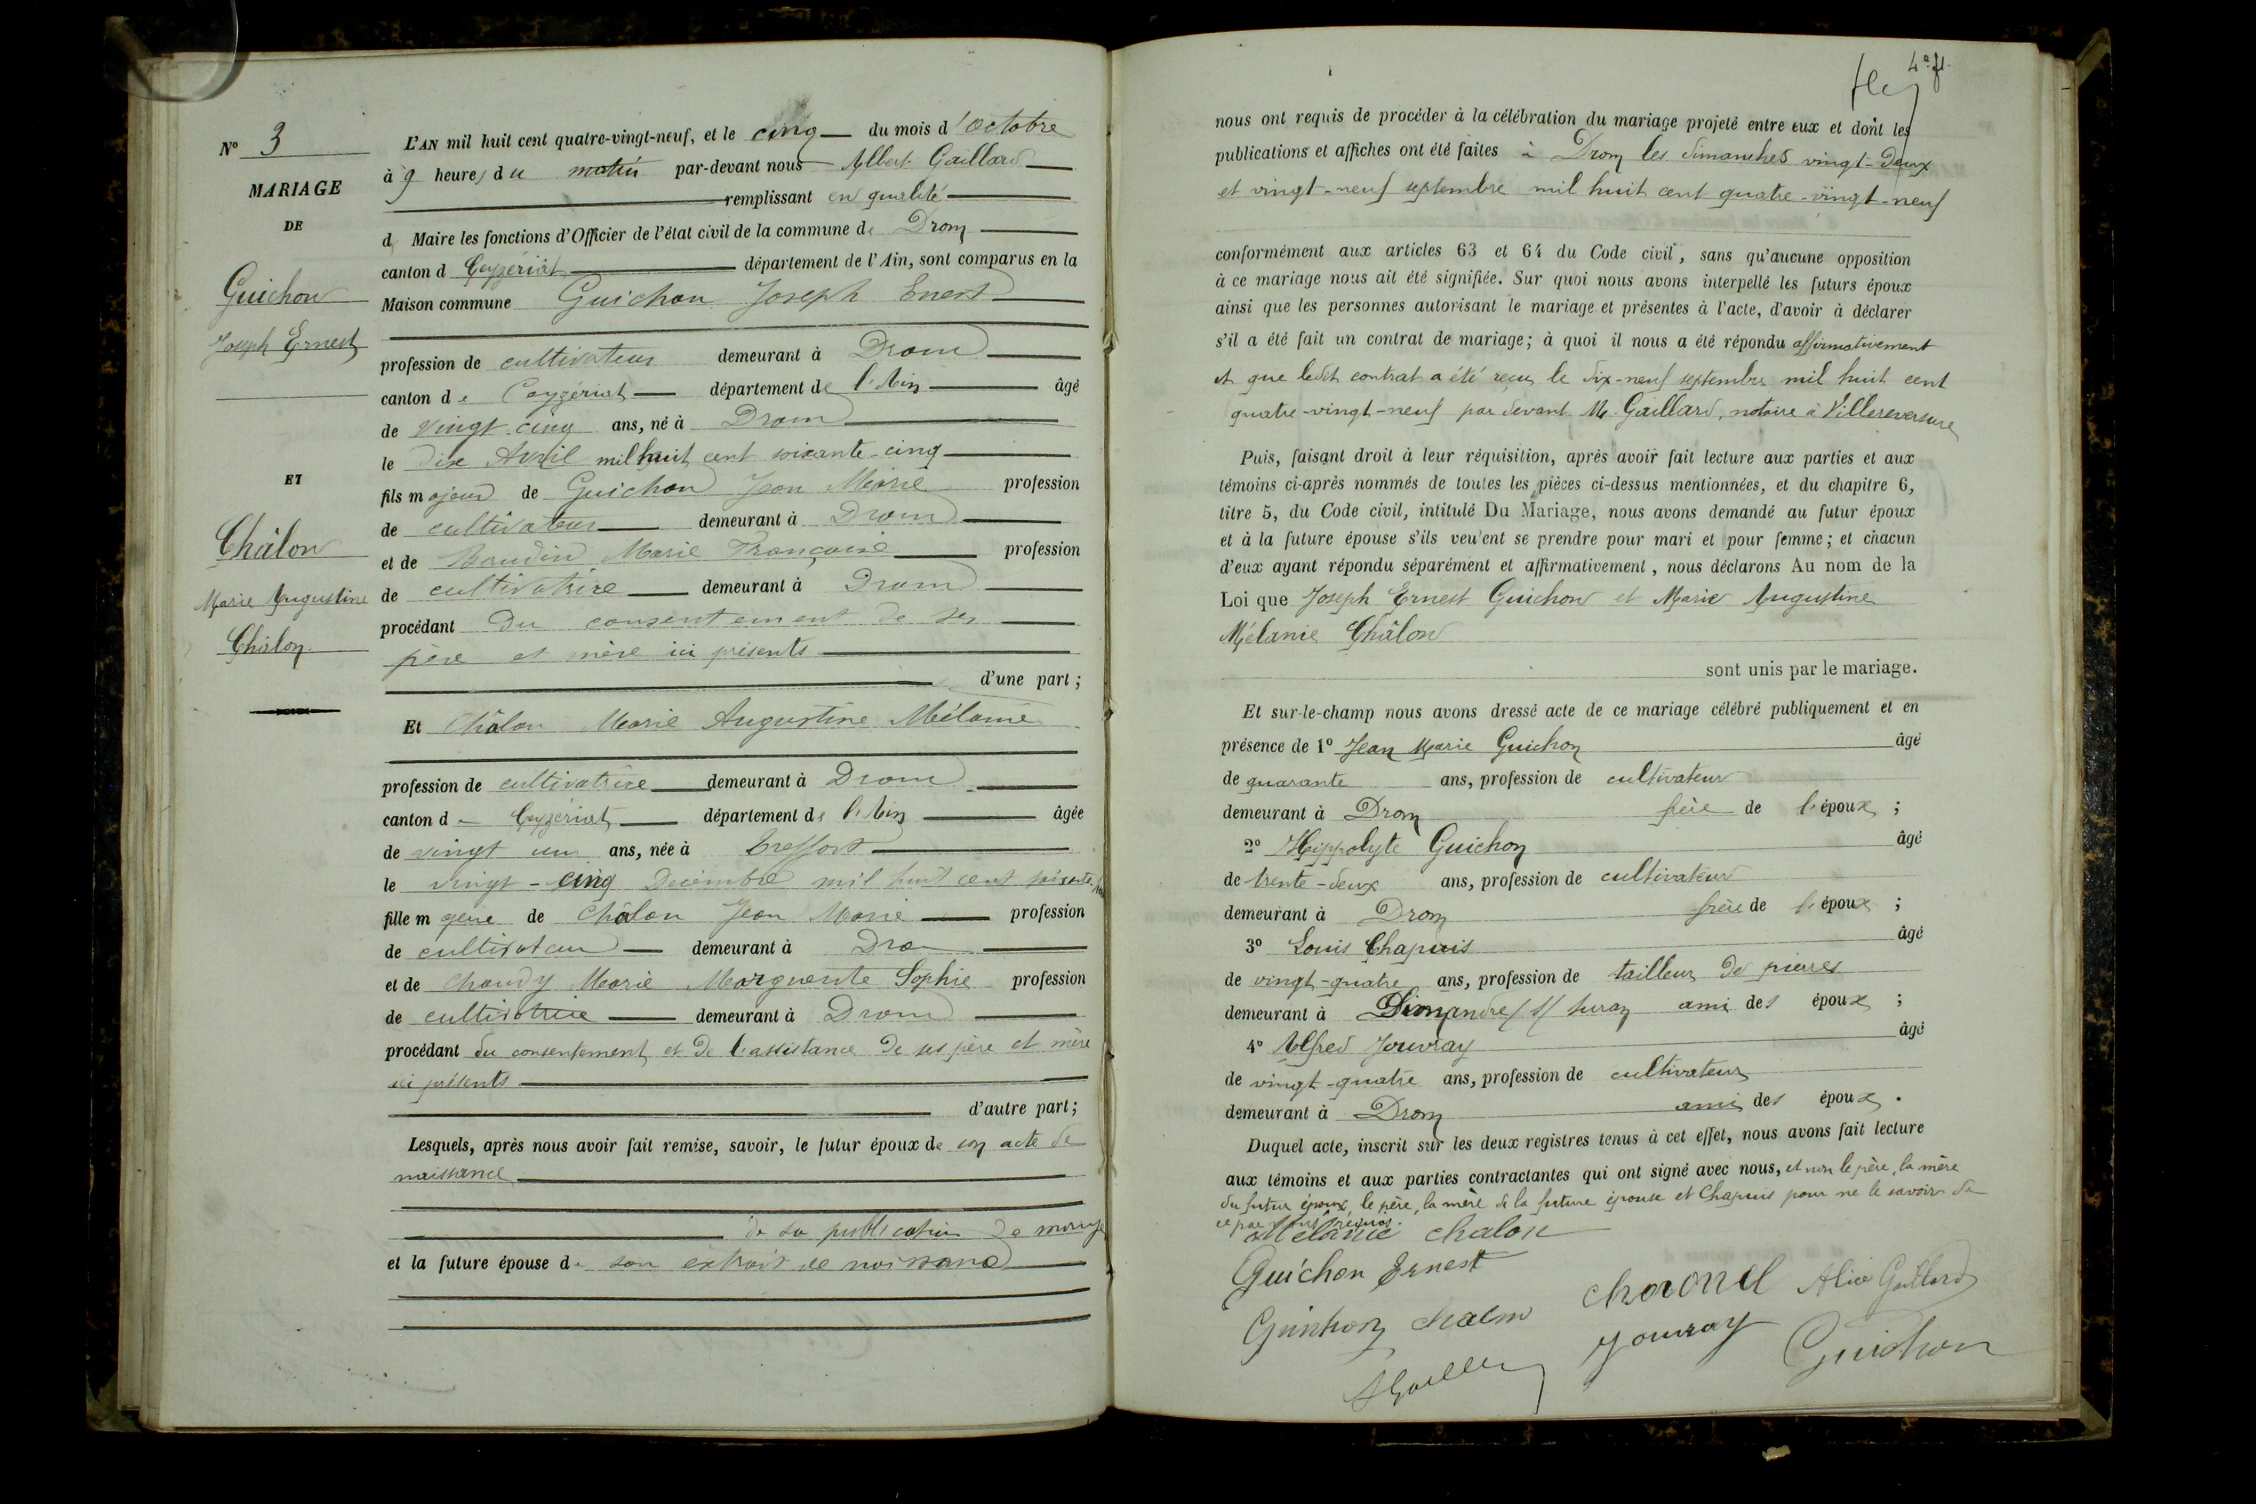 N° 3
MARIAGE
DE
Guichon
Joseph Ernest
ET
Châlon
Marie Augustine
Châlon
L'AN mil huit cent quatre-vingt-neuf, et le cinq du mois d'Octobre
à 9 heures du matin par-devant nous Albert Gaillard
remplissant en qualité
d Maire les fonctions d'Officier de l'état civil de la commune de Drom
canton d Ceyzériat département de l'Ain, sont comparus en la
Maison commune Guichon Joseph Enest
profession de cultivateur demeurant à Drom
canton de Ceyzériat département de l'Ain âgé
de vingt-cinq ans, né à Drom
le dix Avril mil huit cent soixante-cinq
fils majeur de Guichon Jean Marie profession
de cultivateur demeurant à Drom
et de Baudin Marie Françoise profession
de cultivatrice demeurant à Drom
procédant du consentement de ses
père et mère ici présents
d'une part ;
Et Châlon Marie Augustine Mélanie
profession de cultivatrice demeurant à Drom
canton de Ceyzériat département de l'Ain âgée
de vingt un ans, née à Treffort
le vingt-cinq Décembre mil huit cent soixante
fille mgeure de Châlon Jean Marie profession
de cultivateur demeurant à Dro
et de Chaudy Marie Marguerite Sophie profession
de cultivatrice demeurant à Drom
procédant du consentement et de l'assistance de ses père et mère
ici présents
d'autre part ;
Lesquels, après nous avoir fait remise, savoir, le futur époux de son acte de
naissance
de sa publication de mariage
et la future épouse de son extrait de naissance
4e f.
nous ont requis de procéder à la célébration du mariage projeté entre eux et dont les
publications et affiches ont été faites à Drom les dimanches vingt-deux
et vingt-neuf septembre mil huit cent quatre-vingt-neuf
conformément aux articles 63 et 64 du Code civil, sans qu'aucune opposition
à ce mariage nous ait été signifiée. Sur quoi nous avons interpellé les futurs époux
ainsi que les personnes autorisant le mariage et présentes à l'acte, d'avoir à déclarer
s'il a été fait un contrat de mariage; à quoi il nous a été répondu affirmativement
et que ledit contrat a été reçu le dix-neuf septembre mil huit cent
quatre-vingt-neuf par devant Me Gaillard, notaire à Villereversure
Puis, faisant droit à leur réquisition, après avoir fait lecture aux parties et aux
témoins ci-après nommés de toutes les pièces ci-dessus mentionnées, et du chapitre 6,
titre 5, du Code civil, intitulé Du Mariage, nous avons demandé au futur époux
et à la future épouse s'ils veulent se prendre pour mari et pour femme; et chacun
d'eux ayant répondu séparément et affirmativement, nous déclarons Au nom de la
Loi que Joseph Ernest Guichon et Marie Augustine
Mélanie Châlon
sont unis par le mariage.
Et sur-le-champ nous avons dressé acte de ce mariage célébré publiquement et en
présence de 1° Jean Marie Guichon âgé
de quarante ans, profession de cultivateur
demeurant à Drom frère de l'époux ;
2° Hippolyte Guichon âgé
de trente-deux ans, profession de cultivateur
demeurant à Drom frère de l'époux ;
3° Louis Chapuis âgé
de vingt-quatre ans, profession de tailleur de pierres
demeurant à Simandre s/ Suran ami des époux ;
4° Alfred Jouvray âgé
de vingt-quatre ans, profession de cultivateur
demeurant à Drom ami des époux .
Duquel acte, inscrit sur les deux registres tenus à cet effet, nous avons fait lecture
aux témoins et aux parties contractantes qui ont signé avec nous, et non le père, la mère
du futur époux, le père, la mère de la future épouse et Chapuis pour ne le savoir de
ce par nous requis.
Mélanie chalon
Guichon Ernest
Alice Gaillard
Guichon chalon
Jouvray
Guichon